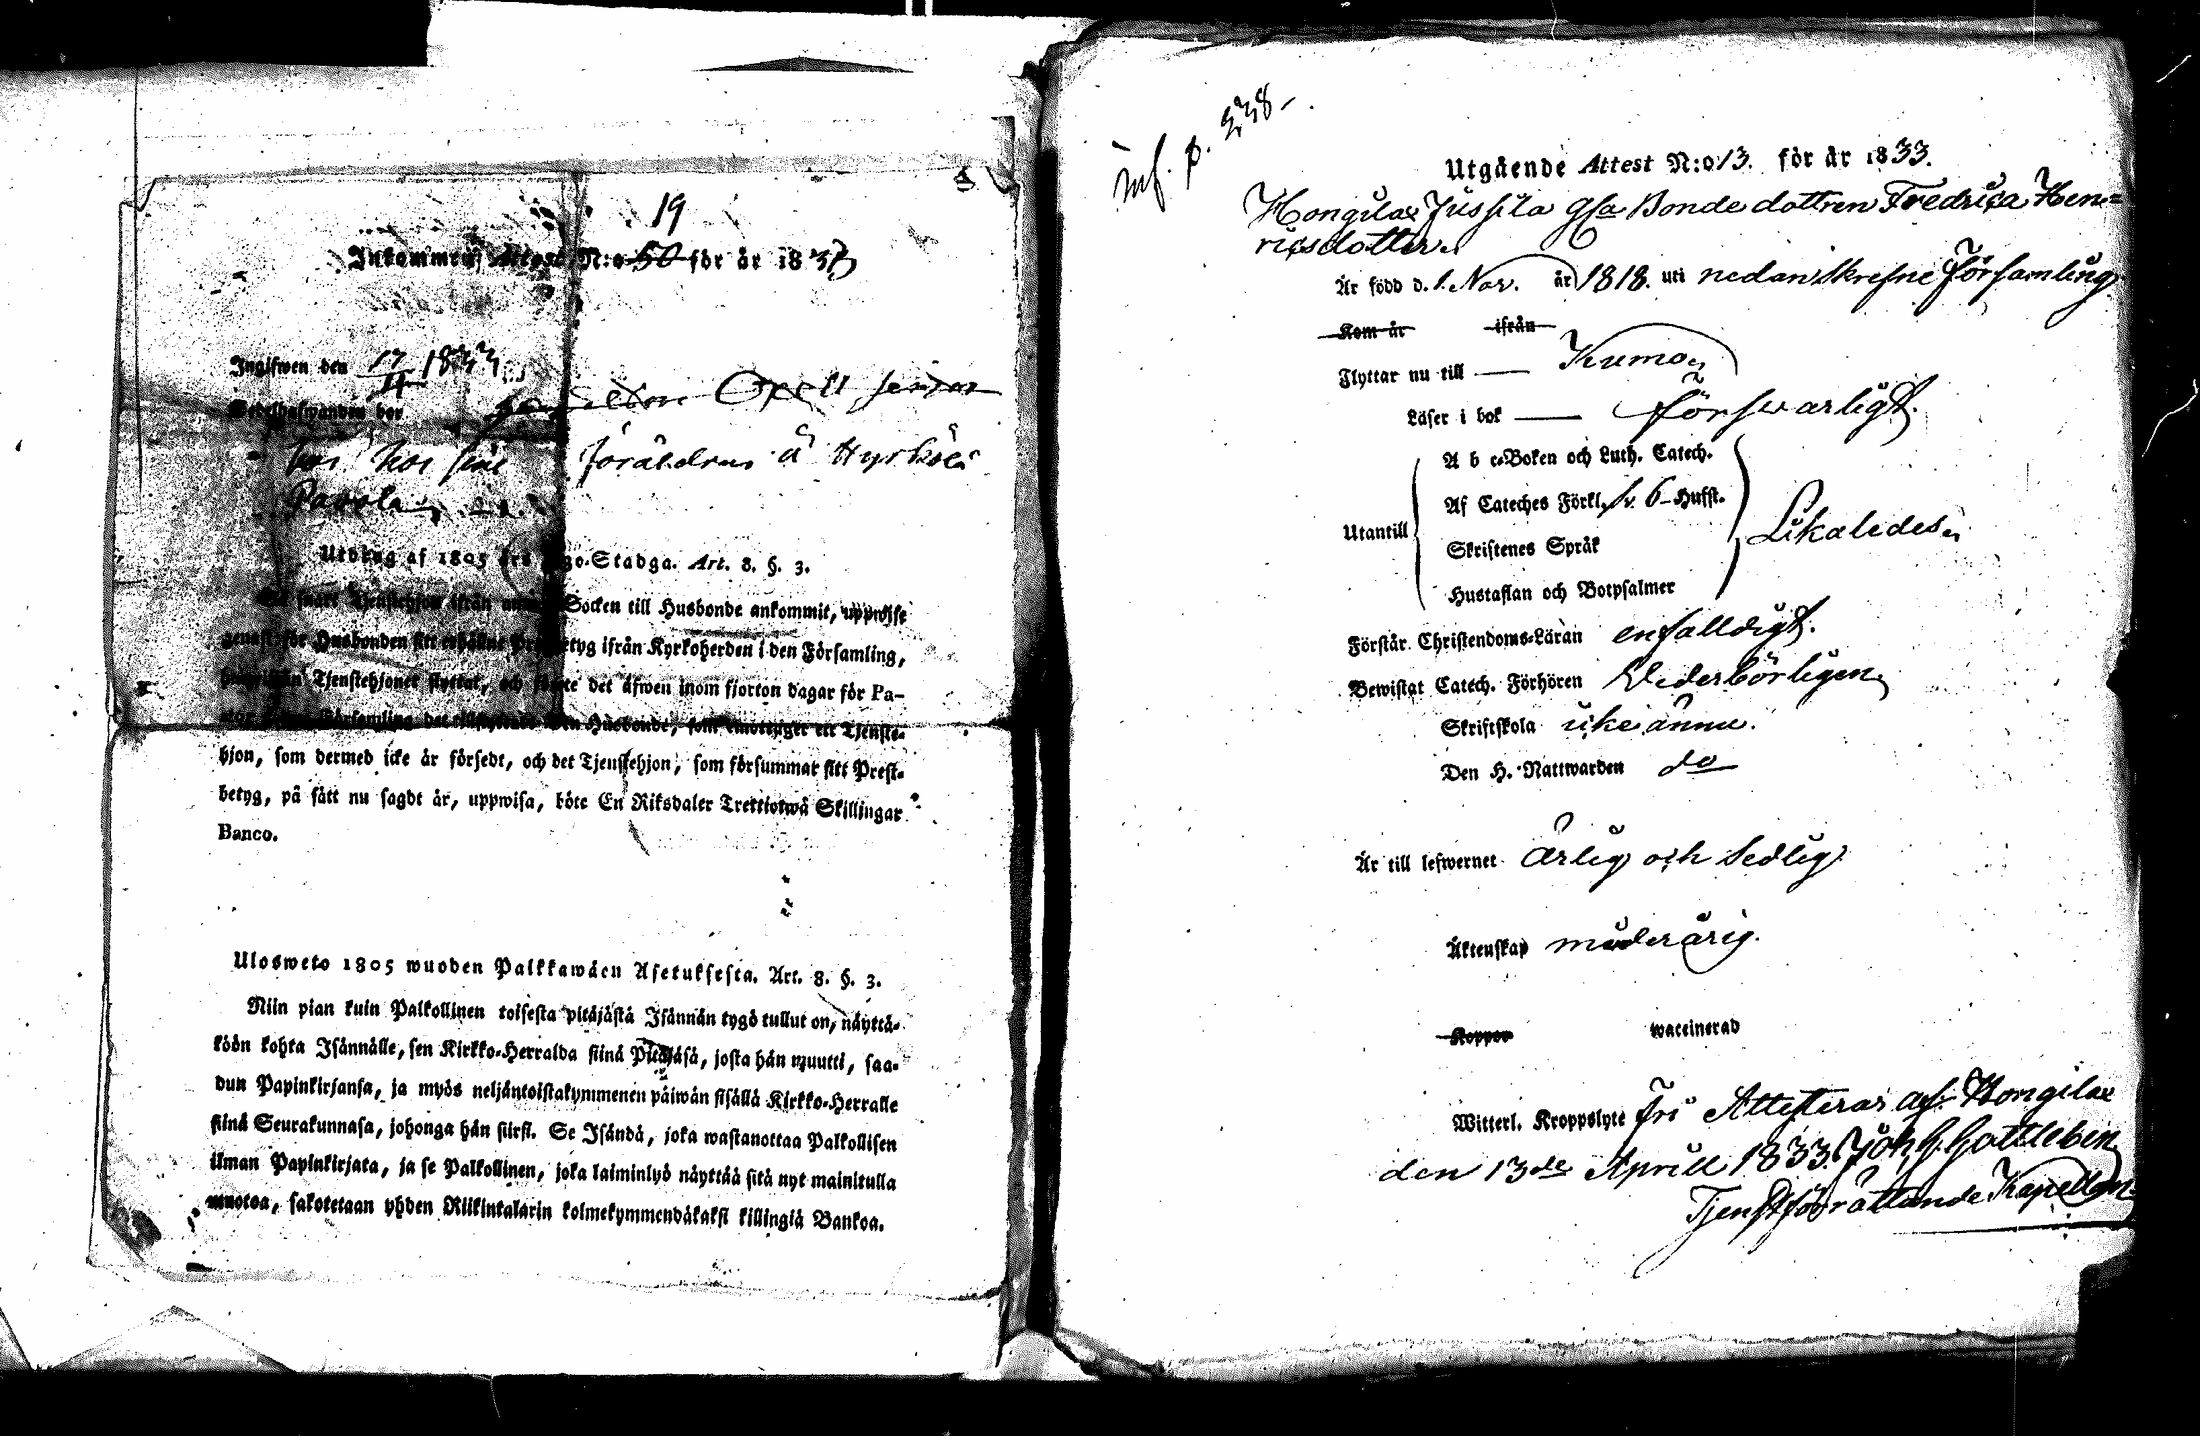 19
Inkommen Attest N:o 50 för år 1833
Ingifwen den 17/11 1833
bor hos sine föräldrar å Hyrkölä
Pavola
Utdrag af 1805 års Lego-Stadga. Art. 8. §. 3.
Så snart Tjenstehjon ifrån annan Socken till Husbonde ankommit, uppwise
genast för Husbonden sitt erhållne Prestbetyg ifrån Kyrkoherden i den Församling,
hwarifrån Tjenstehjonet flyttat, och förete det äfwen inom fjorton dagar för Pa-
Husbonde, som emottager ett Tjenste-
hjon, som dermed icke är försedt, och det Tjenstehjon, som försummar sitt Prest-
betyg, på sätt nu sagdt är, uppwisa, böte En Riksdaler Trettiotwå Skillingar
Banco.
Ulosweto 1805 wuoden Palkkawäen Asetuksesta. Art. 8. §. 3.
Niin pian kuin Palkollinen toisesta pitäjästä Isännän tygö tullut on, näyttä-
köön kohta Isännälle, sen Kirkko-Herralda siinä Pitäjäsä, josta hän muutti, saa-
dun Papinkirjansa, ja myös neljäntoistakymmenen päiwän sisällä Kirkko-Herralle
siinä Seurakunnasa, johonga hän siirsi. Se Isändä, joka wastanottaa Palkollisen
ilman Papinkirjata, ja se Palkollinen, joka laiminlyö näyttää sitä nyt mainitulla
muotoa, sakotetaan yhden Riikintalarin kolmekymmendäkaksi killingiä Bankoa.
inf. p. 338
Utgående Attest N:o 13. för år 1833.
Hongilax Jussila gsa Bonde dottren Fredrica Hen=
ricsdotter
Är född d. 1. Nov. år 1818. uti nedanskrefne församling
Kom år ifrån
Flyttar nu till Kumo
Läser i bok försvarligt.
A b c-Boken och Luth. Catech.
Af Cateches Förkl. 6 Hufst.
Utantill Likaledes
Skriftenes Språk
Hustaflan och Botpsalmer
Förstår Christendoms-Läran enfalldigt.
Bewistat Catech. Förhören Vederbörligen
Skriftskola icke ännu.
Den H. Nattwarden do
Är till lefwernet ärlig och sedlig
Äktenskap minderårig.
Koppor waccinerad
Witterl. Kroppslyte fri Attesteras af Hongilax
den 13de Aprill 1833. Joh. G. Gottleben
Tjenstförrättande Kapellan